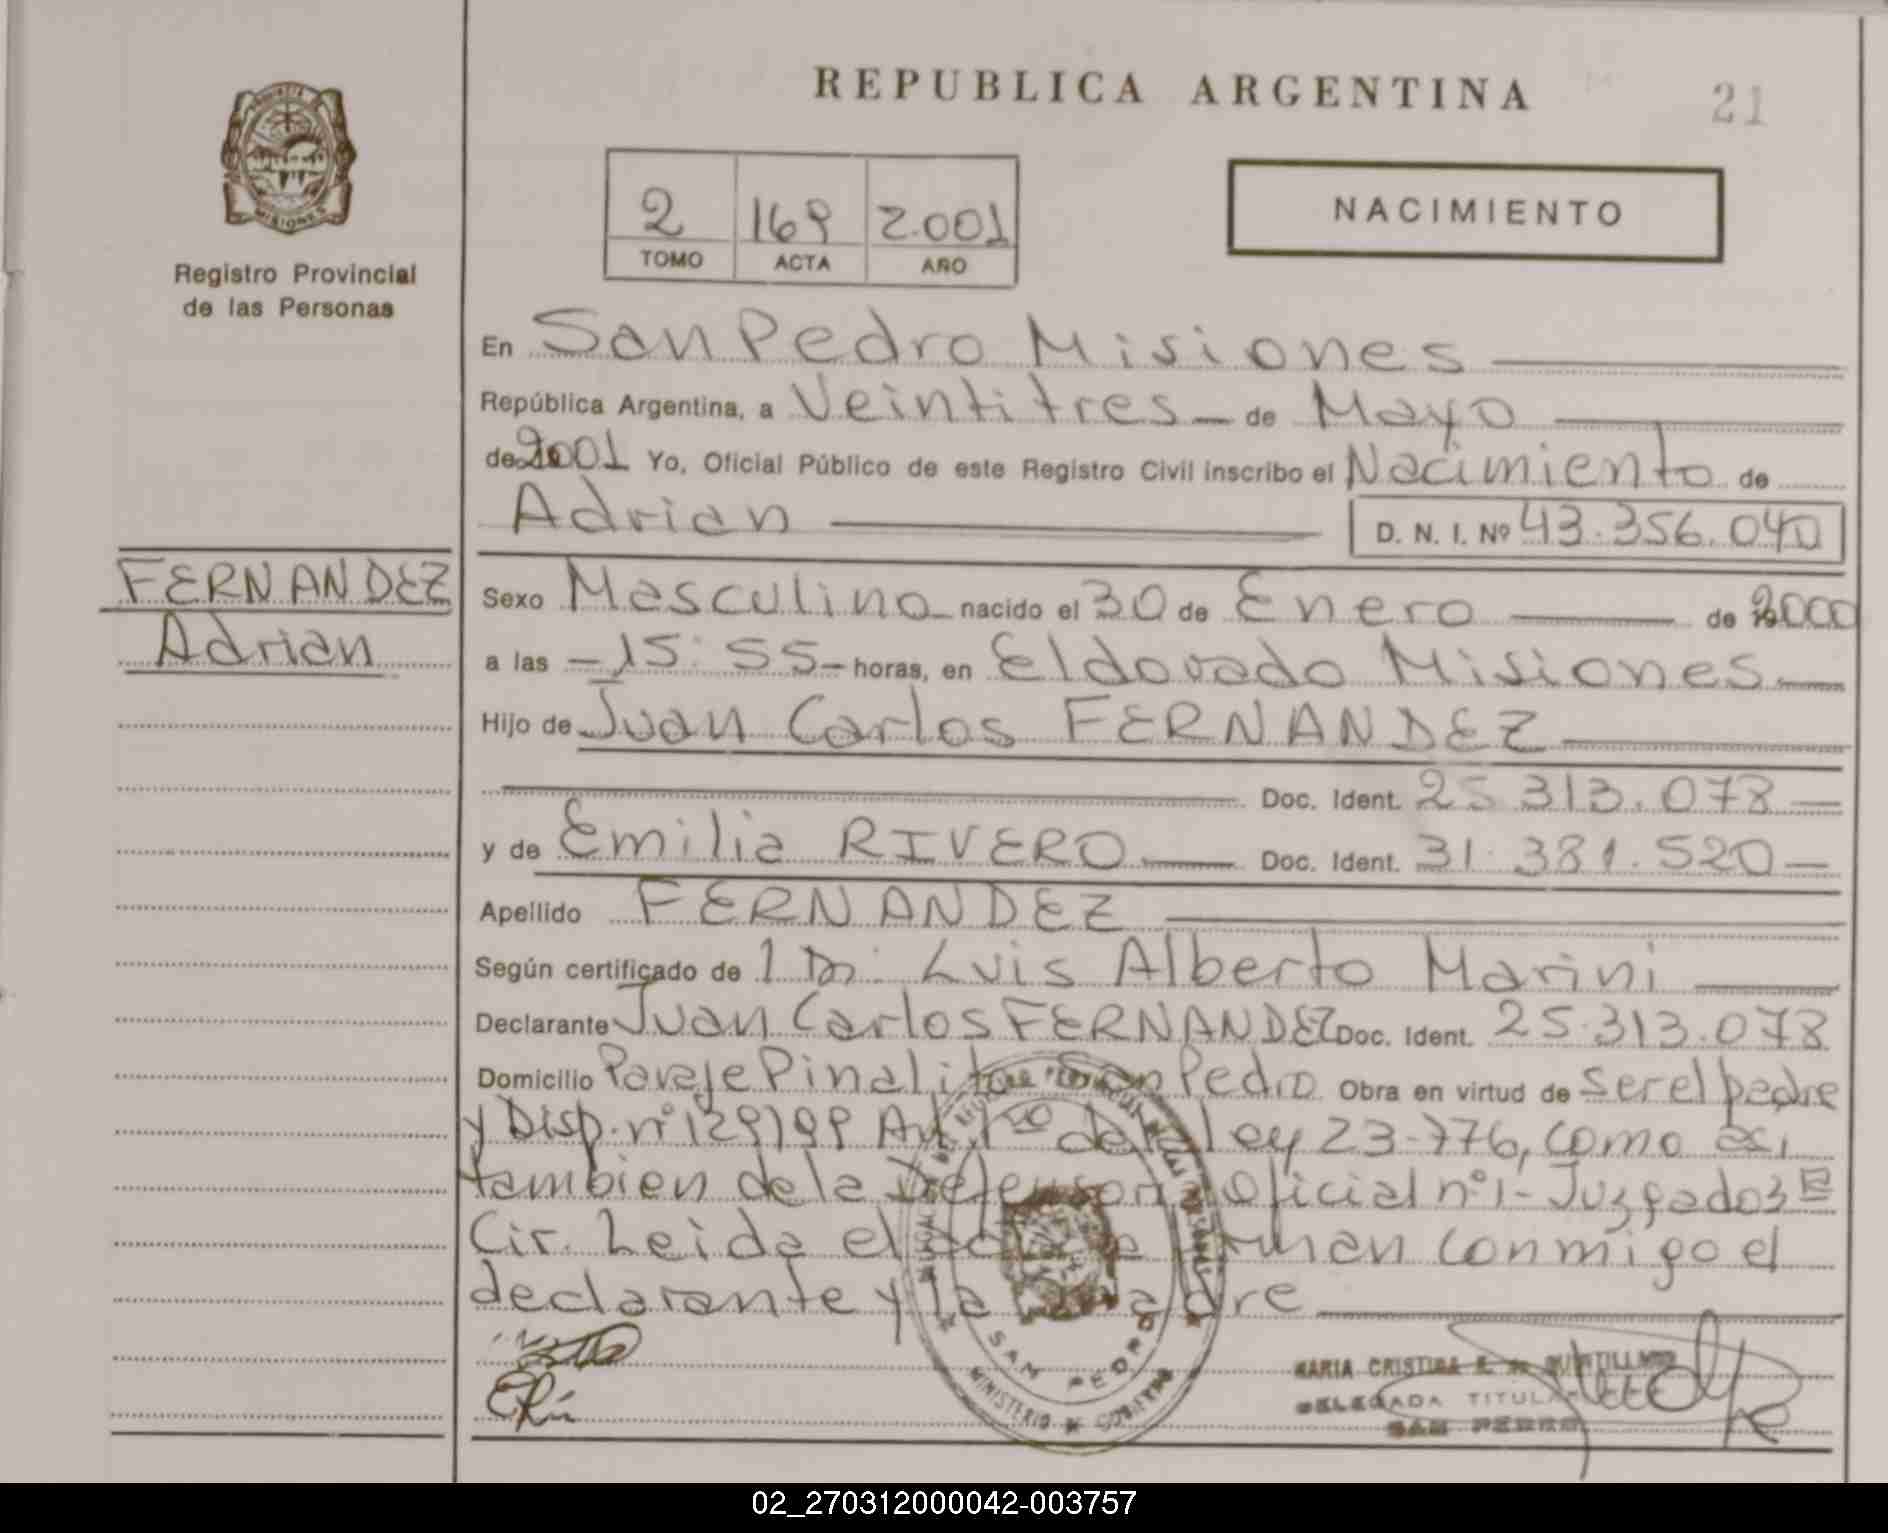 REPUBLICA ARGENTINA
21
PROVINCIA DE MISIONES
Registro Provincial
de las Personas
2 169 2.001
TOMO ACTA AÑO
NACIMIENTO
En San Pedro Misiones
República Argentina, a Veintitres de Mayo
de 2001 Yo, Oficial Público de este Registro Civil inscribo el Nacimiento de
Adrian D. N. I. Nº 43.356.040
FERNANDEZ
Adrian
Sexo Masculino nacido el 30 de Enero de 2000
a las 15:55 horas, en Eldorado Misiones
Hijo de Juan Carlos FERNANDEZ
Doc. Ident. 25.313.078
y de Emilia RIVERO Doc. Ident. 31.381.520
Apellido FERNANDEZ
Según certificado de l Dr. Luis Alberto Marini
Declarante Juan Carlos FERNANDEZ Doc. Ident. 25.313.078
Domicilio Paraje Pinalito San Pedro Obra en virtud de ser el padre
y Disp. nº 129/99 Art. 1ro de la ley 23.776, como asi
tambien de la Defensoria Oficial nº 1 - Juzgado 3ra
Cir. Leida el acta firman conmigo el
declarante y la madre
SAN PEDRO
MINISTERIO DE GOBIERNO
MARIA CRISTINA R. de QUINTILLANO
DELEGADA TITULAR
SAN PEDRO
02_270312000042-003757